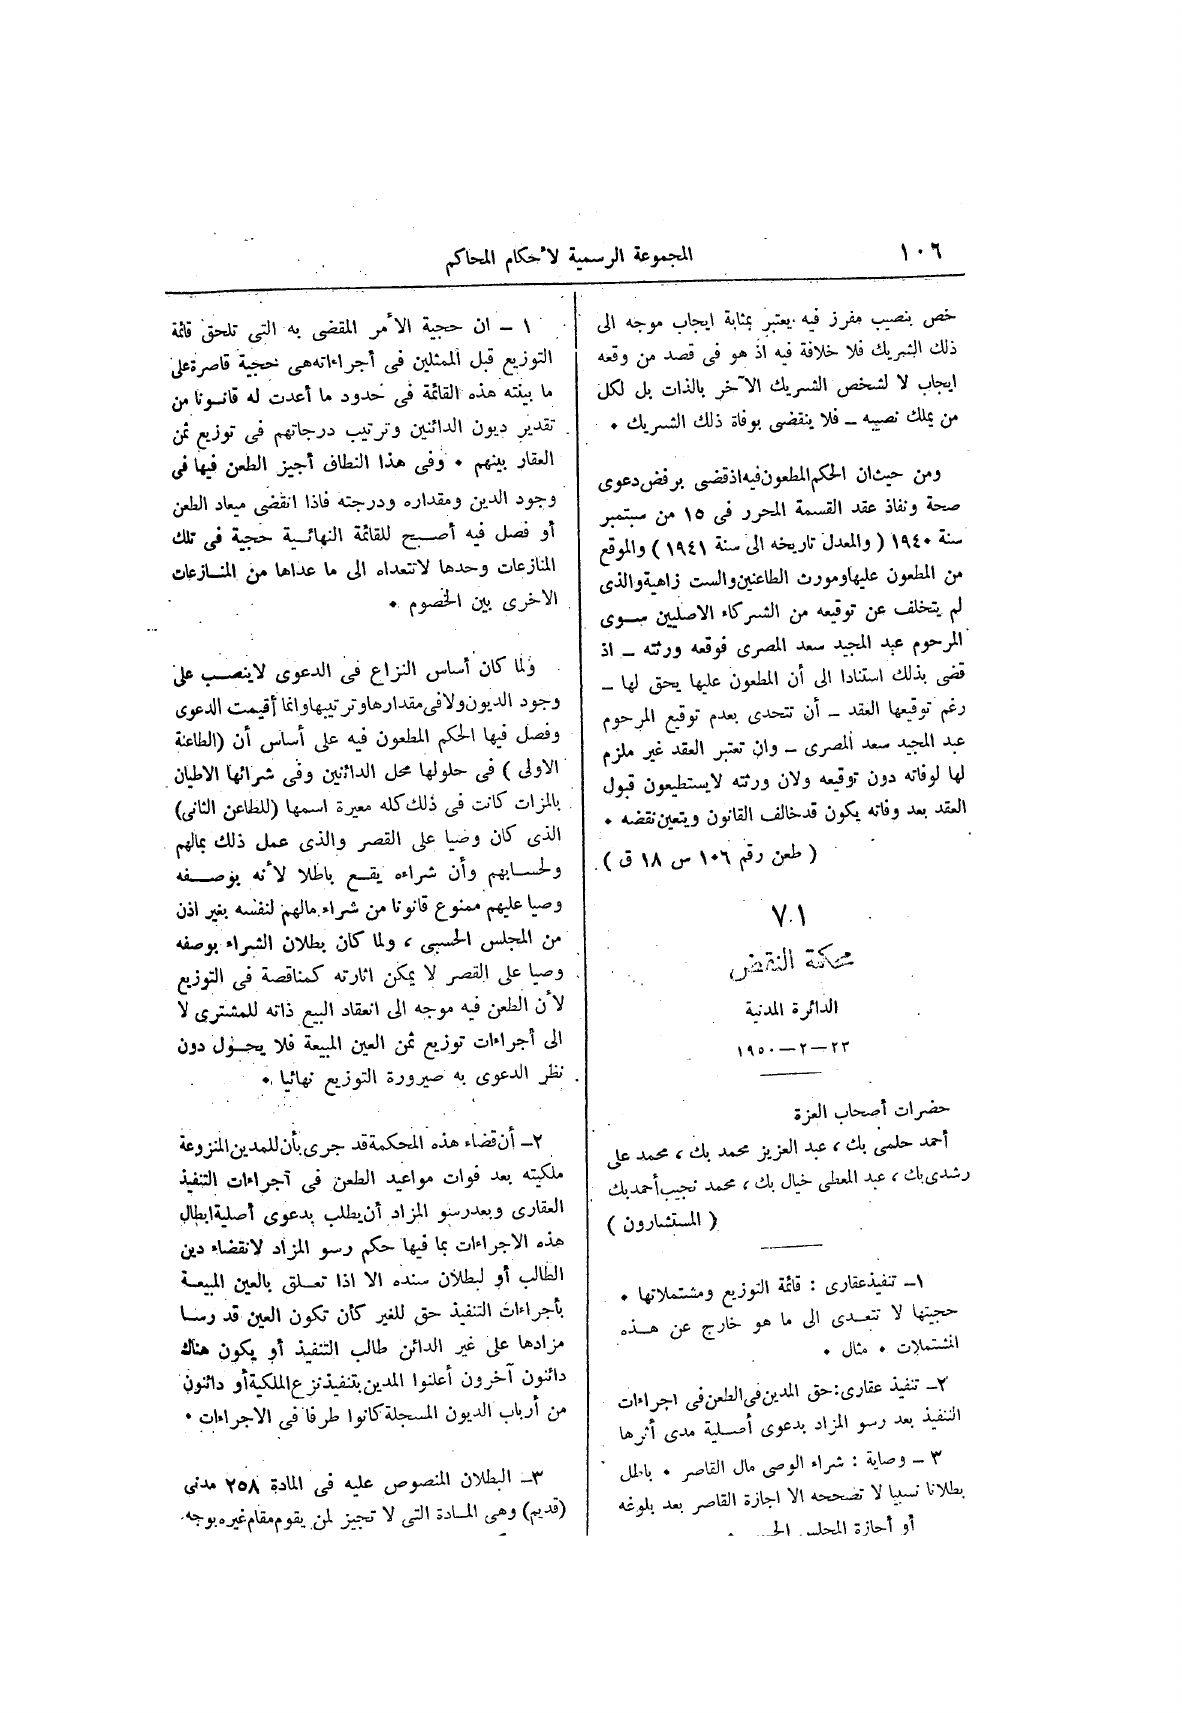 ١٠٦
المجموعة الرسمية لأحكام المحاكم
خص بنصيب مفرز فيه يعتبر بمثابة ايجاب موجه الى
ذلك الشريك فلا خلافة فيه اذ هو فى قصد من وقعه
ايجاب لا لشخص الشريك الآخر بالذات بل لكل
من يملك نصيبه — فلا ينقضى بوفاة ذلك الشريك .
ومن حيث ان الحكم المطعون فيه اذ قضى برفض دعوى
صحة ونفاذ عقد القسمة المحرر فى ١٥ من سبتمبر
سنة ١٩٤٠ ( والمعدل تاريخه الى سنة ١٩٤١ ) والموقع
من المطعون عليها ومورث الطاعنين والست زاهية والذى
لم يتخلف عن توقيعه من الشركاء الاصليين سوى
المرحوم عبد المجيد سعد المصرى فوقعه ورثته — اذ
قضى بذلك استنادا الى أن المطعون عليها يحق لها —
رغم توقيعها العقد — أن تتحدى بعدم توقيع المرحوم
عبد المجيد سعد المصرى — وان تعتبر العقد غير ملزم
لها لوفاته دون توقيعه ولان ورثته لا يستطيعون قبول
العقد بعد وفاته يكون قد خالف القانون ويتعين نقضه .
( طعن رقم ١٠٦ س ١٨ ق ) .
٧٠١
محكمة النقض
الدائرة المدنية
٢٣—٢—١٩٥٠
حضرات أصحاب العزة
أحمد حلمى بك ، عبد العزيز محمد بك ، محمد على
رشدى بك ، عبد المعطى خيال بك ، محمد نجيب أحمد بك
( المستشارون )
١— تنفيذ عقارى : قائمة التوزيع ومشتملاتها .
حجيتها لا تتعدى الى ما هو خارج عن هذه
المشتملات . مثال .
٢— تنفيذ عقارى : حق المدين فى الطعن فى اجراءات
التنفيذ بعد رسو المزاد بدعوى أصلية مدى أثرها
٣ — وصاية : شراء الوصى مال القاصر . باطل
بطلانا نسبيا لا تصححه الا اجازة القاصر بعد بلوغه
أو أجازة المجلس
١ — ان حجية الأمر المقضى به التى تلحق قائمة
التوزيع قبل الممثلين فى أجراءاته هى حجية قاصرة على
ما بينته هذه القائمة فى حدود ما أعدت له قانونا من
تقدير ديون الدائنين وترتيب درجاتهم فى توزيع ثمن
العقار بينهم . وفى هذا النطاق أجيز الطعن فيها فى
وجود الدين ومقداره ودرجته فاذا انقضى ميعاد الطعن
أو فصل فيه أصبح للقائمة النهائية حجية فى تلك
المنازعات وحدها لا تتعداه الى ما عداها من المنازعات
الاخرى بين الخصوم .
ولما كان أساس النزاع فى الدعوى لا ينصب على
وجود الديون ولا فى مقدارها وترتيبها وانما أقيمت الدعوى
وفصل فيها الحكم المطعون فيه على أساس أن (الطاعنة
الاولى ) فى حلولها محل الدائنين وفى شرائها الاطيان
بالمزات كانت فى ذلك كله معيرة اسمها (للطاعن الثانى)
الذى كان وصيا على القصر والذى عمل ذلك بمالهم
ولحسابهم وأن شراءه يقع باطلا لأنه بوصفه
وصيا عليهم ممنوع قانونا من شراء مالهم لنفسه بغير اذن
من المجلس الحسبى ، ولما كان بطلان الشراء بوصفه
وصيا على القصر لا يمكن اثارته كمناقصة فى التوزيع
لأن الطعن فيه موجه الى انعقاد البيع ذاته للمشترى لا
الى أجراءات توزيع ثمن العين المبيعة فلا يحول دون
نظر الدعوى به صيرورة التوزيع نهائيا .
٢— أن قضاء هذه المحكمة قد جرى بأن للمدين المنزوعة
ملكيته بعد فوات مواعيد الطعن فى اجراءات التنفيذ
العقارى وبعد رسو المزاد أن يطلب بدعوى أصلية ابطال
هذه الاجراءات بما فيها حكم رسو المزاد لانقضاء دين
الطالب أو لبطلان سنده الا اذا تعلق بالعين المبيعة
بأجراءات التنفيذ حق للغير كأن تكون العين قد رسا
مزادها على غير الدائن طالب التنفيذ أو يكون هناك
دائنون آخرون أعلنوا المدين بتنفيذ نزع الملكية أو دائنون
من أرباب الديون المسجلة كانوا طرفا فى الاجراءات .
٣— البطلان المنصوص عليه فى المادة ٢٥٨ مدنى
(قديم) وهى المادة التى لا تجيز لمن يقوم مقام غيره بوجه